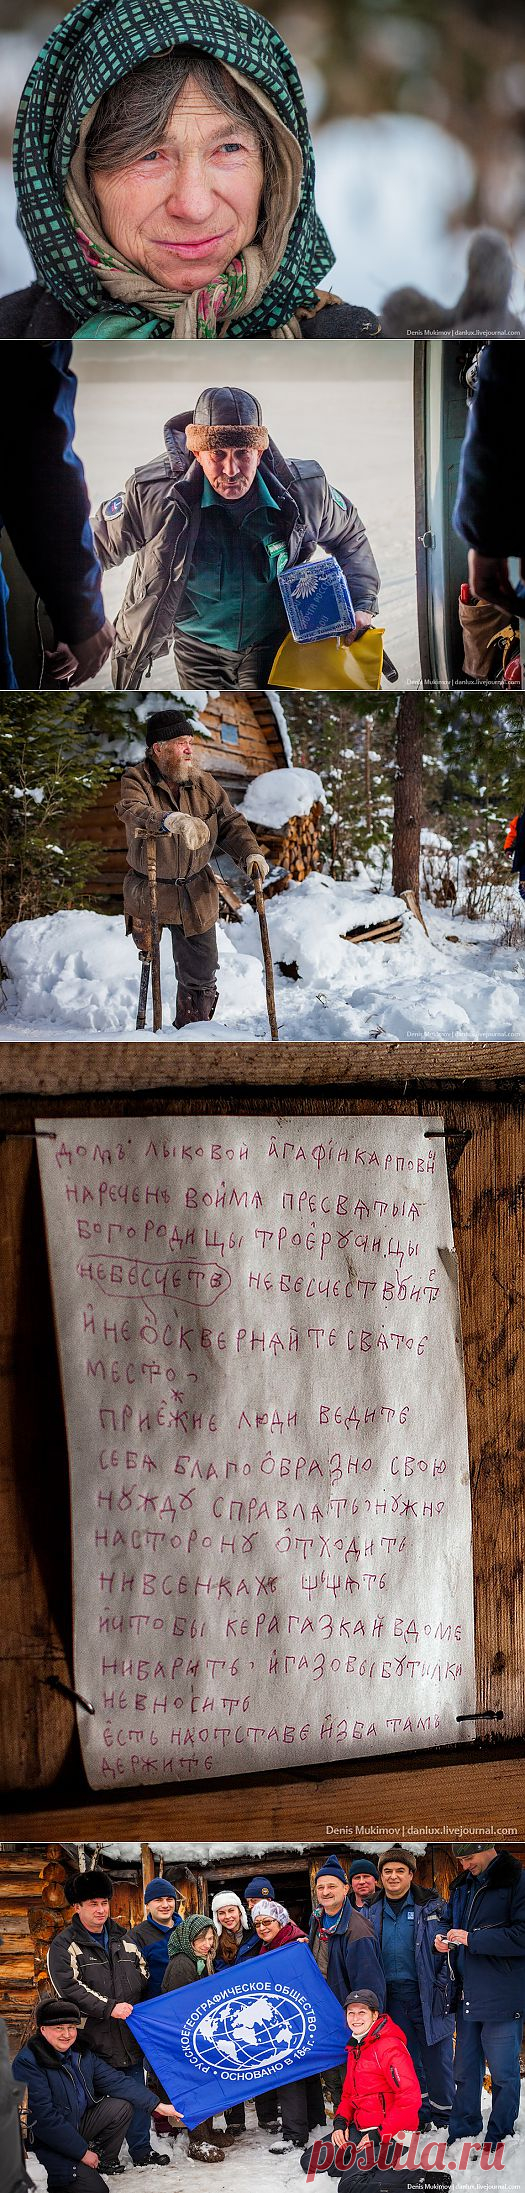 Denis Mukimov | danlux.livejournal.com
Denis Mukimov | danlux.livejournal.com
Denis Mukimov | danlux.livejournal.com
домъ лыковой агафiи карповн
нареченъ во имя пресвятыя
богородицы троеручицы
небесчетв небесчествоите
и не оскверняйте святое
место,
приежие люди ведите
себя благообразно свою
нужду справлять, нужно
на сторону отходить
ни в сенкахъ
и чтобы керагазкай в доме
ни варить, и газовы бутилки
не вносить
есть на отставе изба тамъ
держите
Denis Mukimov | danlux.livejournal.com
РУССКОЕ ГЕОГРАФИЧЕСКОЕ ОБЩЕСТВО
• ОСНОВАНО В 1845 г. •
postila.ru
Denis Mukimov | danlux.livejournal.com